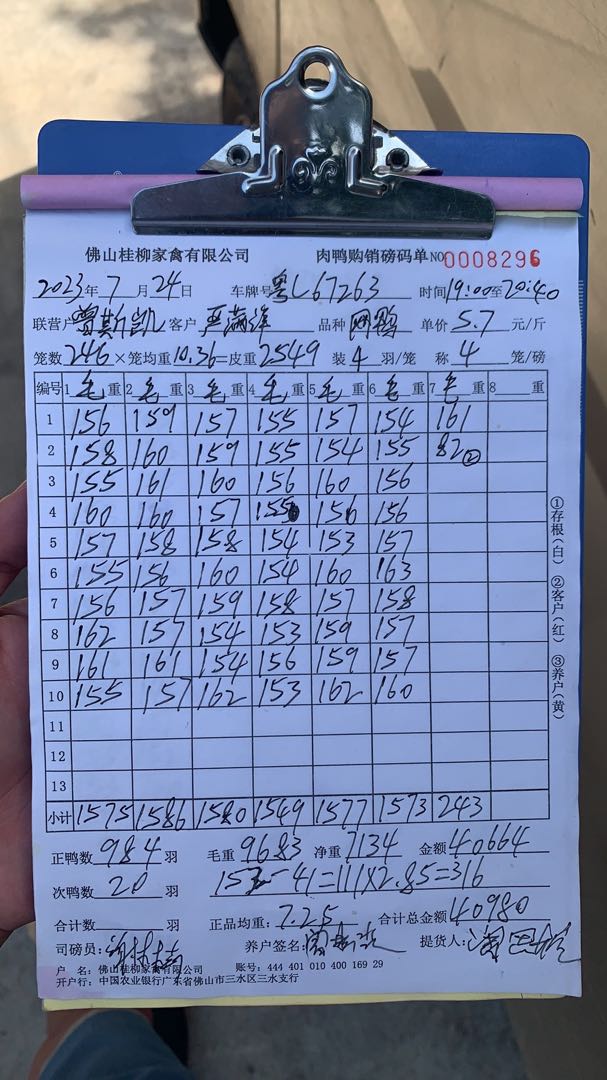 佛山桂柳家禽有限公司 肉鸭购销磅码单 NO 0008296
2023年 7月 24日 车牌号 粤L67263 时间19:00至20:40
联营户 曾斯凯 客户 严满锋 品种 网鸭 单价 5.7 元/斤
笼数 246 ×笼均重 10.36=皮重 2549 装 4 羽/笼 称 4 笼/磅
编号 1 毛 重 2 毛 重 3 毛 重 4 毛 重 5 毛 重 6 毛 重 7 毛 重 8 重
1 156 159 157 155 157 154 161
2 158 160 159 155 154 155 82②
3 155 161 160 156 160 156
4 160 160 157 155 156 156
5 157 158 158 154 153 157
6 155 156 160 154 160 163
7 156 157 159 158 157 158
8 162 157 154 153 159 157
9 161 161 154 156 159 157
10 155 157 162 153 162 160
11
12
13
小计 1575 1586 1580 1549 1577 1573 243
正鸭数 984 羽 毛重 9683 净重 7134 金额 40664
次鸭数 20 羽 152-41=111×2.85=316
合计数 羽 正品均重: 7.25 合计总金额 40980
司磅员: 养户签名: 提货人:
户 名: 佛山桂柳家禽有限公司 账号: 444 401 010 400 169 29
开户行: 中国农业银行广东省佛山市三水区三水支行
①存根(白) ②客户(红) ③养户(黄)